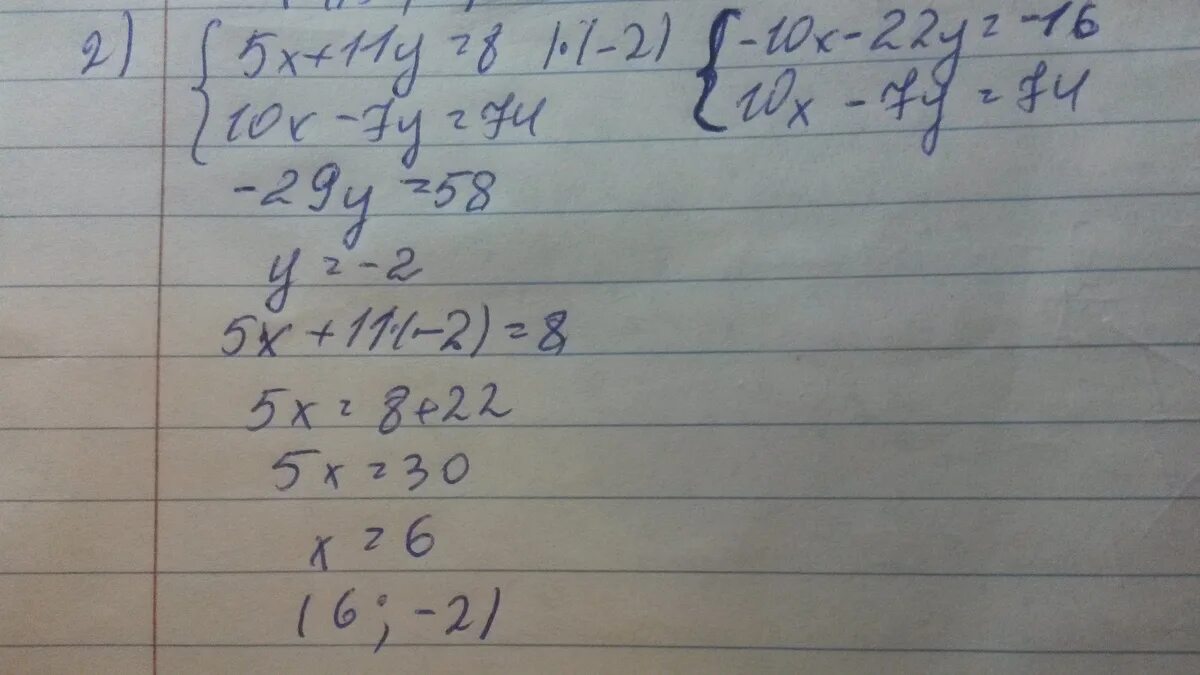 2) { 5x+11y=8 |·(-2) { -10x-22y=-16
10x-7y=74 10x-7y=74
-29y=58
y=-2
5x+11·(-2)=8
5x=8+22
5x=30
x=6
(6;-2)